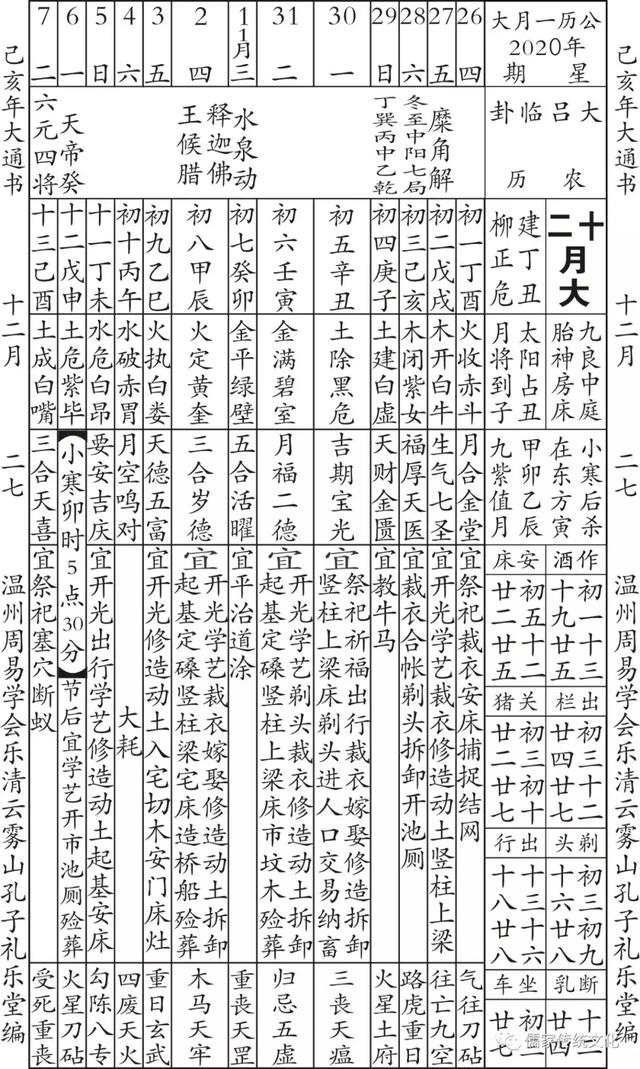 己亥年大通书 十二月 二七 温州周易学会乐清云雾山孔子礼乐堂编
公历一月大
2020年
星期
大吕临卦
农历
十二月大
建丁丑
柳正危
九良中庭
胎神房床
太阳占丑
月将到子
小寒后杀
在东方寅
甲卯乙辰
九紫值月
作酒
初一十三
十九廿五
安床
初五十二
廿二廿五
出栏
初三十二
廿四廿七
关猪
初三初十
廿二廿七
剃头
初三初九
十六廿八
出行
十三十六
十八廿八
断乳
十二
廿四
坐车
初二
廿七
26 四
初一丁酉
火收赤斗
月合金堂
宜祭祀裁衣安床捕捉结网
气往刀砧
27 五
糜角解
初二戊戌
木开白牛
生气七圣
宜开光学艺裁衣修造动土竖柱上梁
往亡九空
28 六
冬至中阳七局
初三己亥
木闭紫女
福厚天医
宜裁衣合帐剃头拆卸开池厕
路虎重日
29 日
丁巽丙中乙乾
初四庚子
土建白虚
天财金匮
宜教牛马
火星土府
30 一
初五辛丑
土除黑危
吉期宝光
宜
祭祀祈福出行裁衣嫁娶修造拆卸
竖柱上梁床剃头进人口交易纳畜
三丧天瘟
31 二
初六壬寅
金满碧室
月福二德
宜
开光学艺剃头裁衣修造动土拆卸
起基定磉竖柱上梁床市坟木殓葬
归忌五虚
1 1月三
水泉动
初七癸卯
金平绿壁
五合活曜
宜平治道涂
重丧天罡
2 四
释迦佛
王候腊
初八甲辰
火定黄奎
三合岁德
宜
开光学艺裁衣嫁娶修造动土拆卸
起基定磉竖柱梁宅床造桥船殓葬
木马天牢
3 五
初九乙巳
火执白娄
天德五富
宜开光修造动土入宅切木安门床灶
重日玄武
4 六
初十丙午
水破赤胃
月空鸣对
大耗
四废天火
5 日
十一丁未
水危白昴
要安吉庆
宜开光出行学艺修造动土起基安床
勾陈八专
6 一
天帝癸
十二戊申
土危紫毕
【小寒卯时5点30分】节后宜学艺开市池厕殓葬
火星刀砧
7 二
六元四将
十三己酉
土成白嘴
三合天喜
宜祭祀塞穴断蚁
受死重丧
己亥年大通书 十二月 二七 温州周易学会乐清云雾山孔子礼乐堂编
儒家传统文化